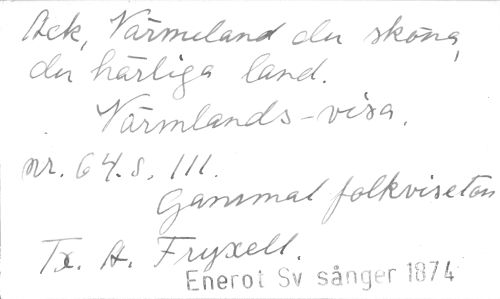 Ack, Värmeland du sköna,
du härliga land.
Värmlands-visa.
nr. 64. s. 111.
Gammal folkviseton
Tx. A. Fryxell.
Enerot Sv sånger 1874